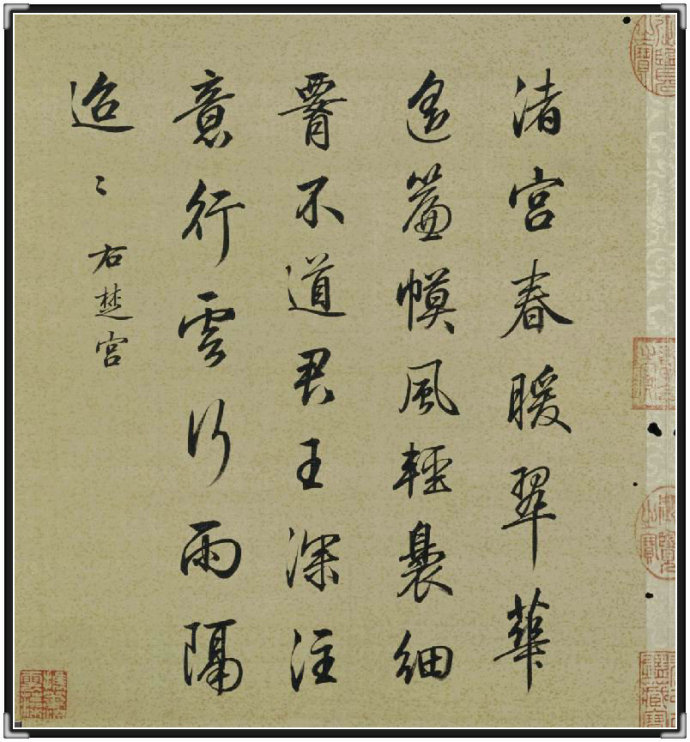 渚宮春暖翠華
遙簾幙風輕裊細
䯻不道君王深注
意行雲行雨隔
迢〻
右楚宮